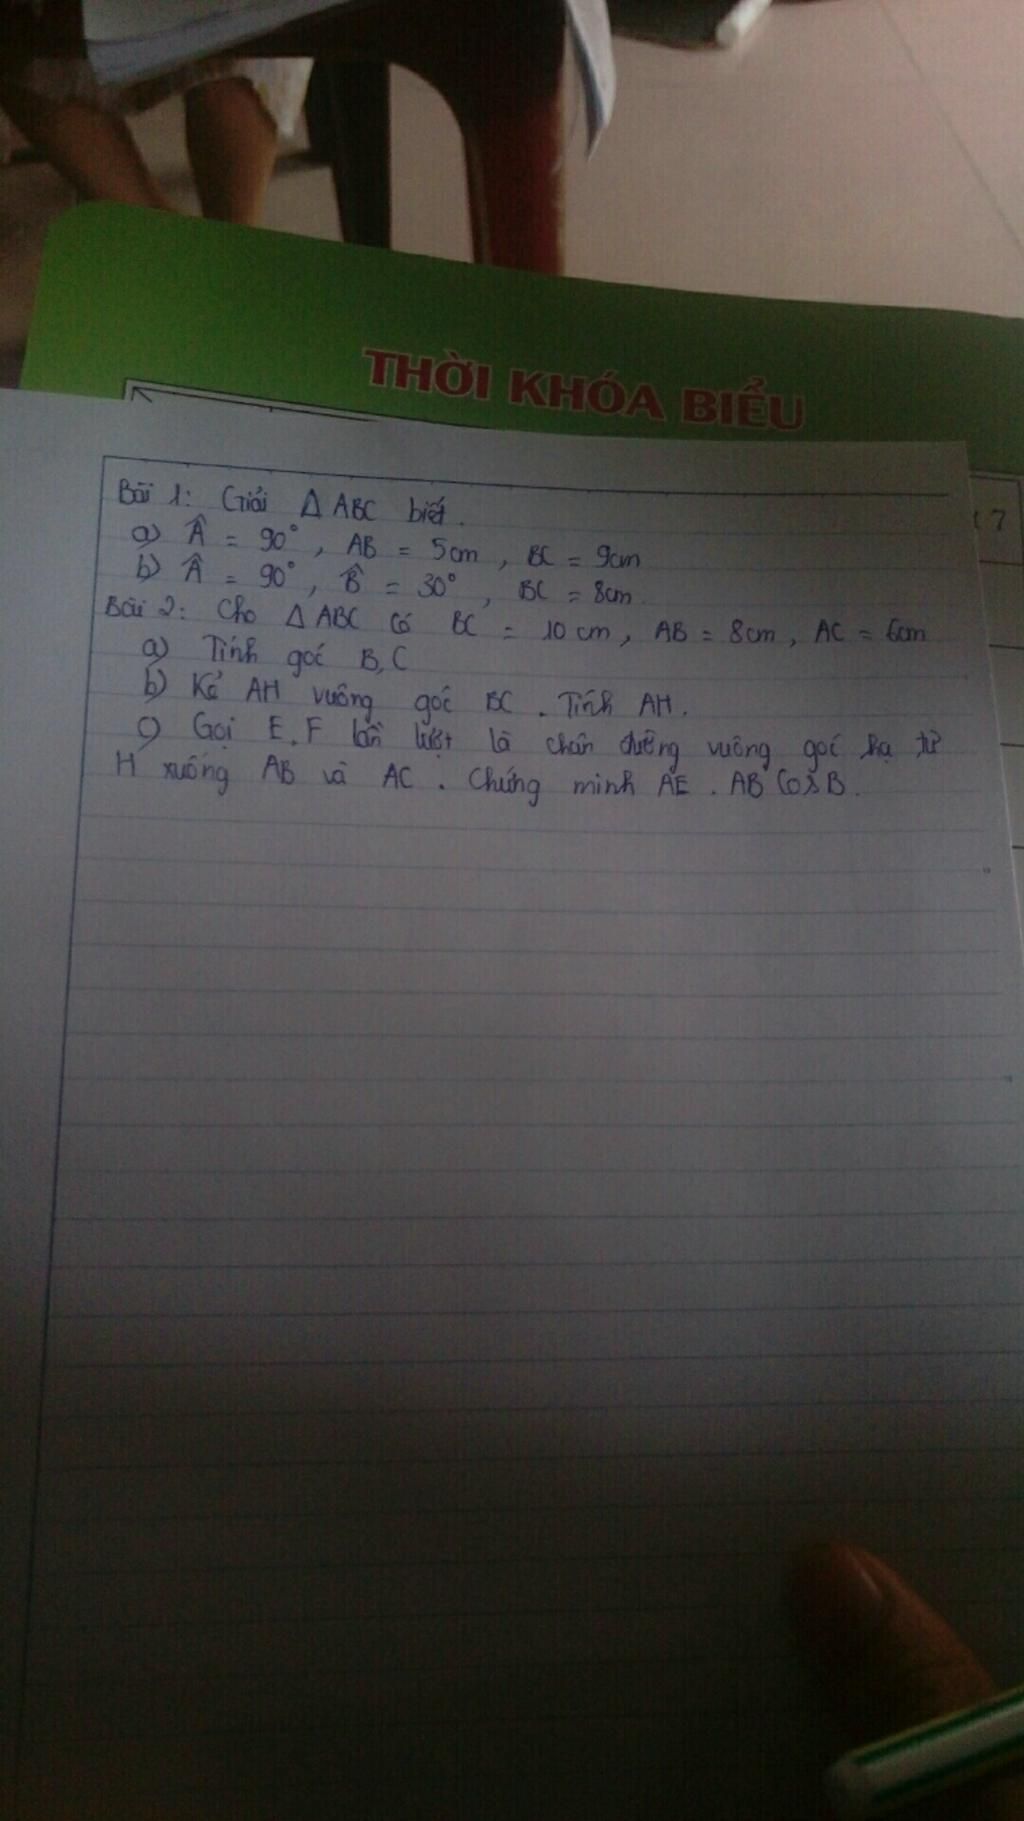 THỜI KHÓA BIỂU
7
Bài 1: Giải Δ ABC biết.
a) Â = 90°, AB = 5cm, BC = 9cm
b) Â = 90°, B̂ = 30°, BC = 8cm.
Bài 2: Cho Δ ABC có BC = 10cm, AB = 8cm, AC = 6cm
a) Tính góc B, C
b) Kẻ AH vuông góc BC. Tính AH.
c) Gọi E, F lần lượt là chân đường vuông góc hạ từ
H xuống AB và AC. Chứng minh AE. AB Cos B.